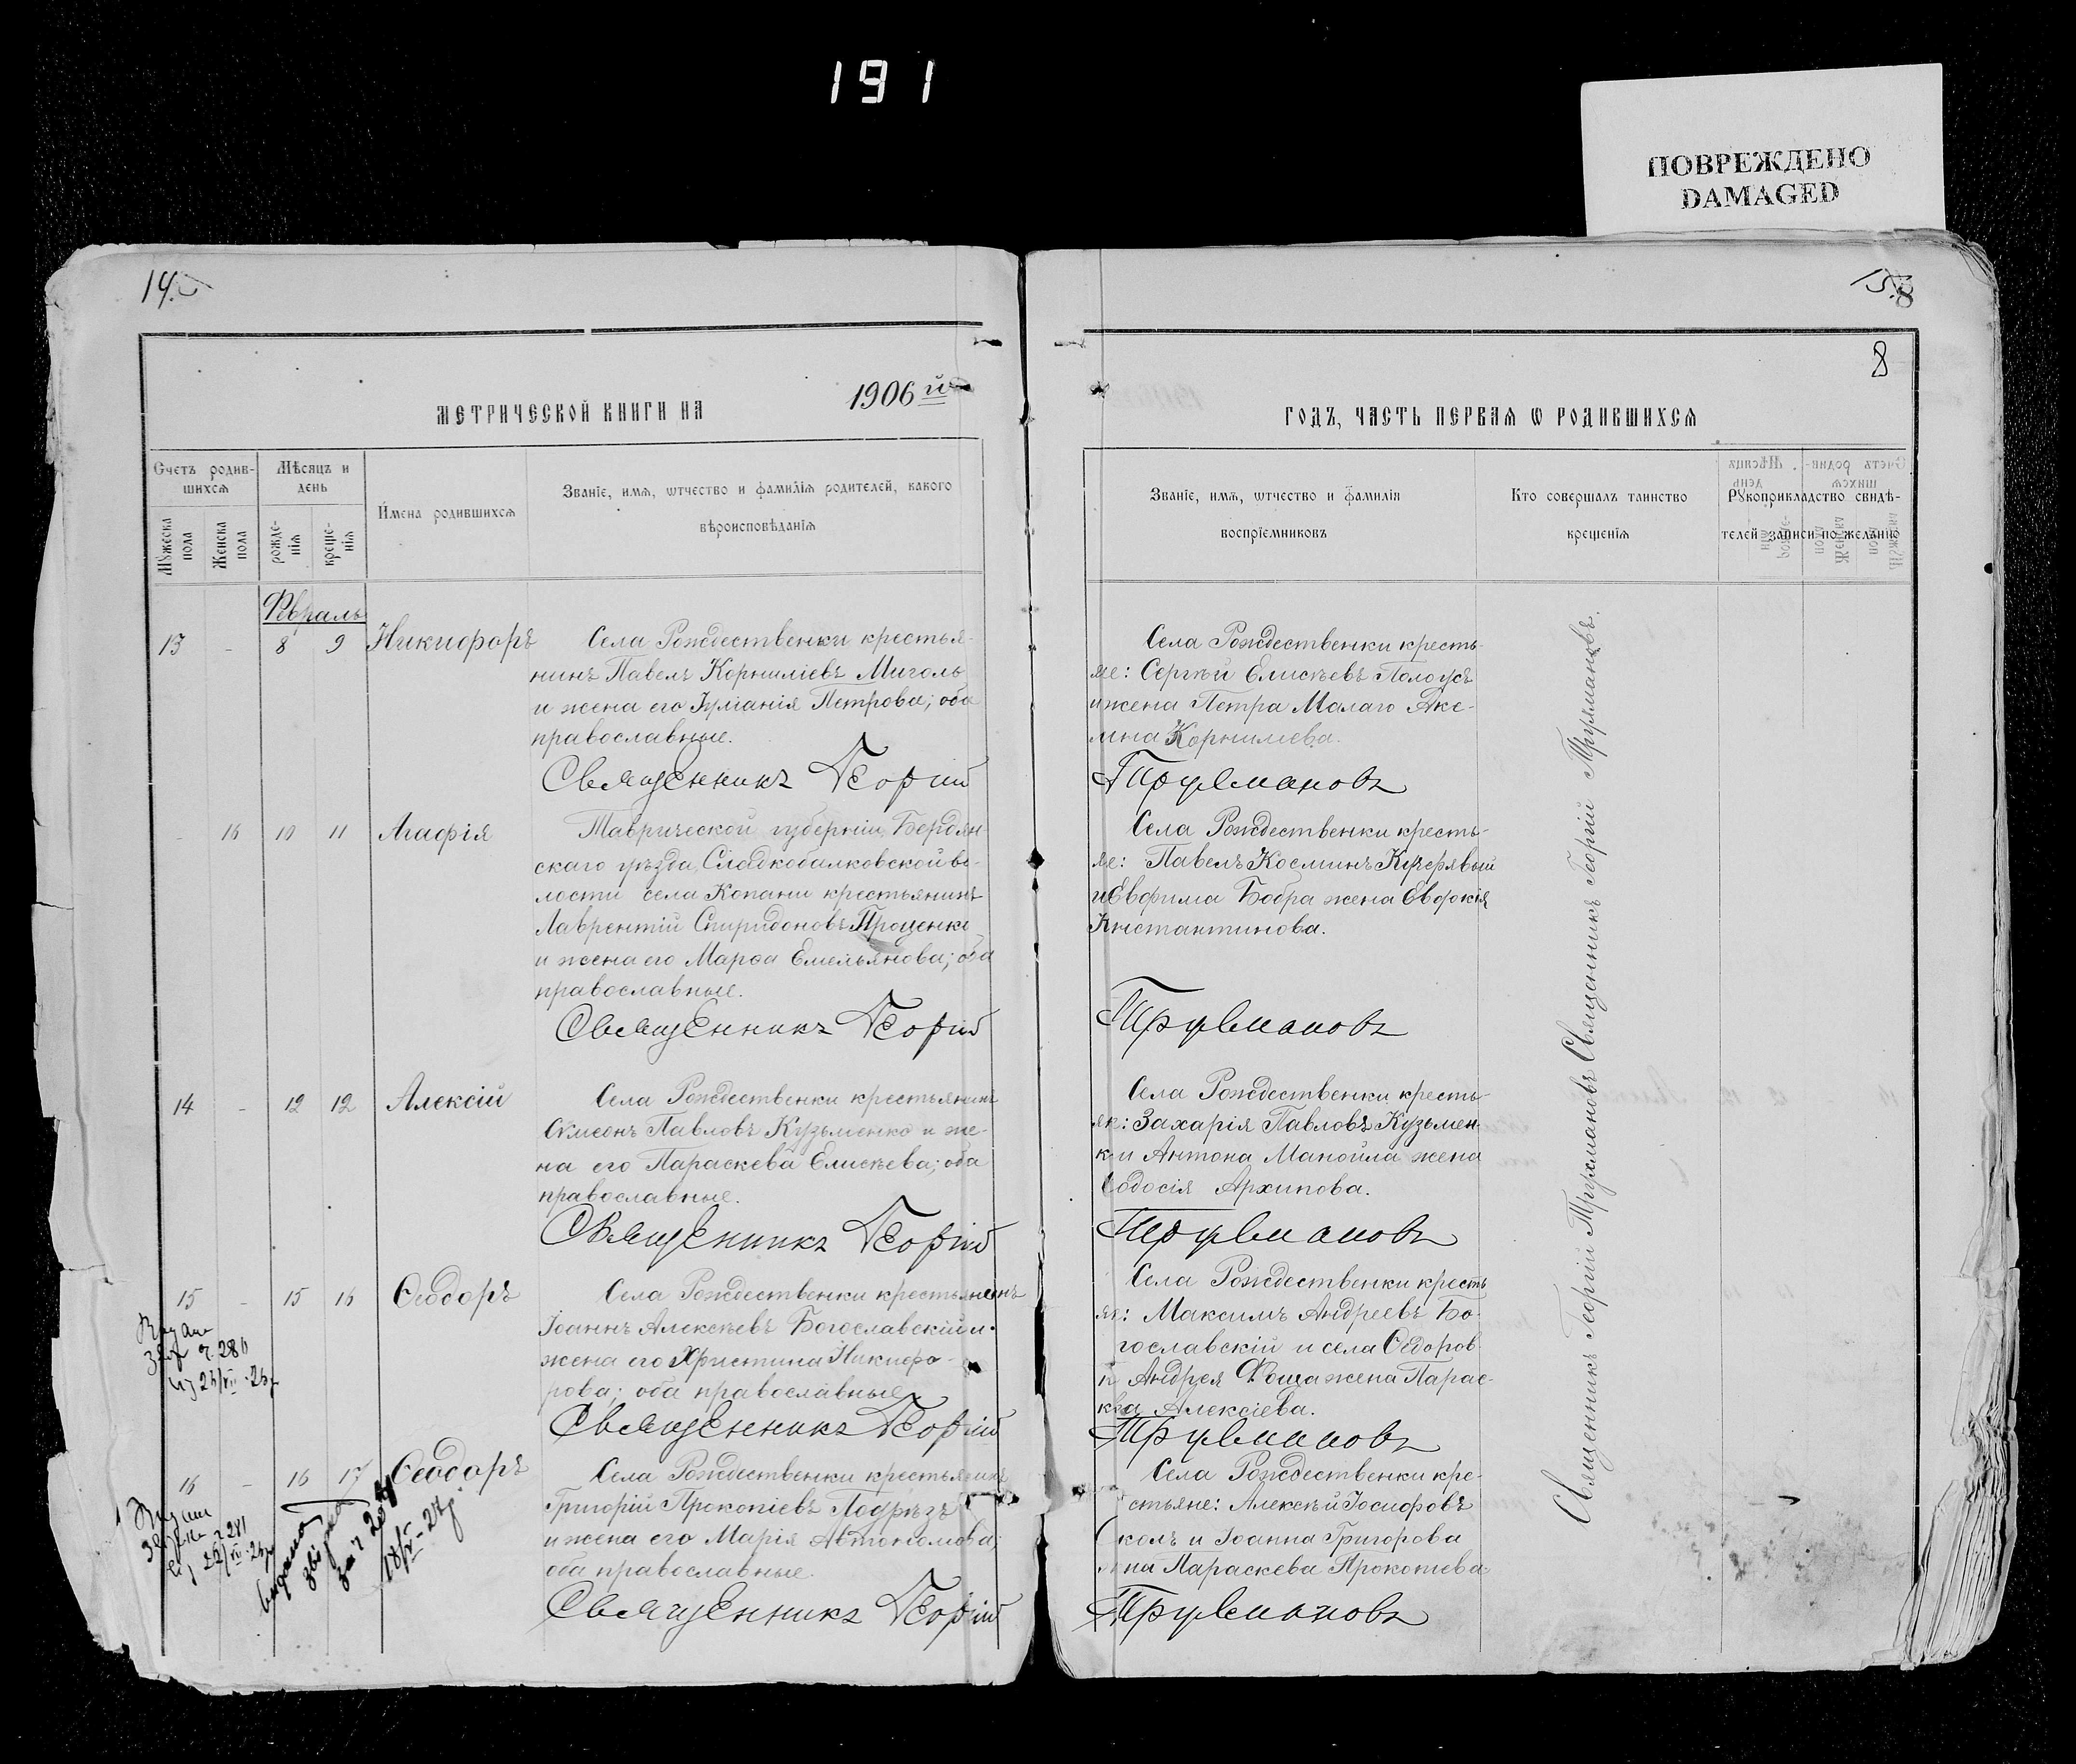 191
ПОВРЕЖДЕНО
DAMAGED
14.
15.
8
8
МЕТРИЧЕСКОЙ КНИГИ НА 1906й
ГОДЪ, ЧАСТЬ ПЕРВАЯ Ѡ РОДИВШИХСЯ
Счетъ родив-
шихся
Мѣсяцъ и
день
Имена родившихся
Званіе, имя, ѡтчество и фамилія родителей, какого
вѣроисповѣданія
Мужеска пола
Женска пола
рожде-
нія
креще-
нія
Званіе, имя, ѡтчество и фамилія
воспріемниковъ
Кто совершалъ таинство
крещенія
Рукоприкладство свидѣ-
телей записи по желанію
Февраль
13 - 8 9 Никифоръ
Села Рождественки крестья-
нинъ Павелъ Корниліевъ Миголь
и жена его Іуліанія Петрова; оба
православные.
Священникъ Георгій
Села Рождественки кресть-
яне: Сергѣй Елисѣевъ Полоусъ
и жена Петра Малаго Аке-
лина Корнилиева.
Трухмановъ
- 16 10 11 Агафія
Таврической губерніи, Бердян-
скаго уѣзда, Сладкобалковской во-
лости села Копани крестьянинъ
Лаврентій Спиридоновъ Проценко
и жена его Марѳа Емельянова; оба
православные.
Священникъ Георгій
Села Рождественки кресть-
яне: Павелъ Косминъ Кучерявый
и Евфима Бобра жена Евдокія
Константинова.
Трухмановъ
14 - 12 12 Алексій
Села Рождественки крестьянинъ
Симеонъ Павловъ Кузьменко и же-
на его Параскева Елисѣева; оба
православные.
Священникъ Георгій
Села Рождественки кресть-
ян: Захарія Павловъ Кузьмен-
к и Антона Манойла жена
Ѳеодосія Архипова.
Трухмановъ
15 - 15 16 Ѳеодоръ
Села Рождественки крестьянинъ
Іоаннъ Алексѣевъ Богославскій и
жена его Христина Никифо-
рова; оба православные.
Священникъ Георгій
Села Рождественки кресть
ян: Максимъ Андреевъ Бо-
гославскій и села Ѳедоров-
к Андрея Фоща жена Парас-
кева Алексіева.
Трухмановъ
16 - 16 17 Ѳеодоръ
Села Рождественки крестьянинъ
Григорій Прокопіевъ Подрѣзъ
и жена его Марія Автономова;
оба православные.
Священникъ Георгій
Села Рождественки кре-
стьяне: Алексѣй Іосифовъ
Сколь и Іоанна Григорова
жена Параскева Прокопіева
Трухмановъ
Священникъ Георгій Трухмановъ Священникъ Георгій Трухмановъ.